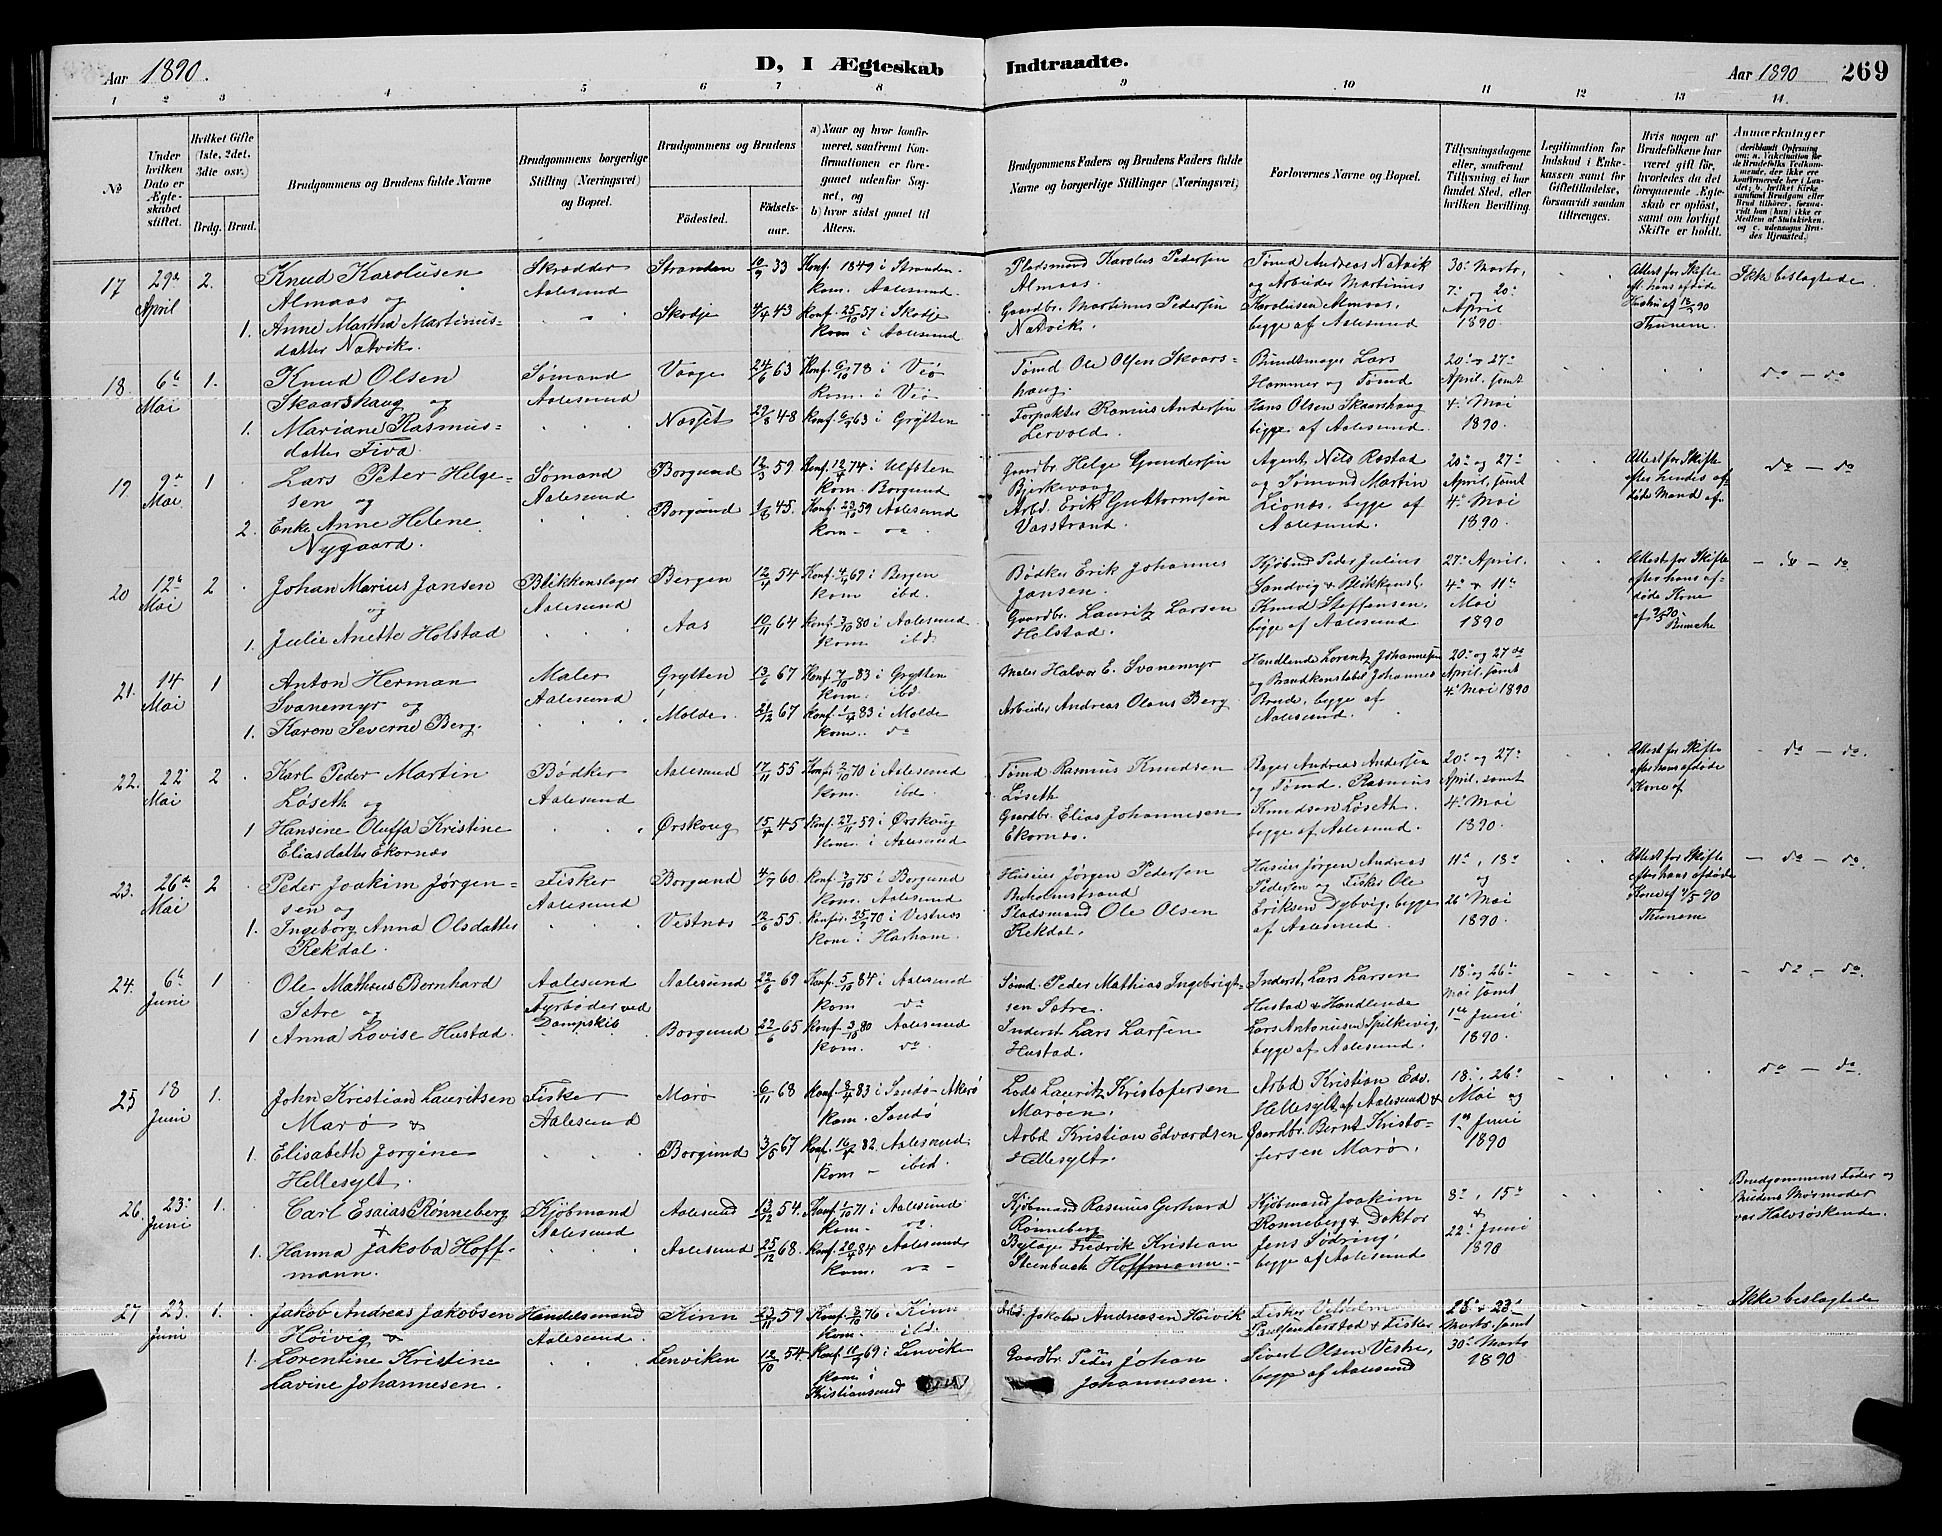 Aar 1890.
D, I Ægteskab
Indtraadte.
Aar 1890
269
1 2 3 4 5 6 7 8 9 10 11 12 13 14.
No
Under hvilken Dato er Ægteskabet stiftet.
Hvilket Gifte (1ste, 2det, 3die osv.)
Brdg. Brud.
Brudgommens og Brudens fulde Navne
Brudgommens borgerlige Stilling (Næringsvei) og Bopæl.
Brudgommens og Brudens
Fødested.
Fødselsaar.
a) Naar og hvor konfirmeret, saafremt Konfirmationen er foregaaet udenfor Sognet, og
b) hvor sidst gaaet til Alters.
Brudgommens Faders og Brudens Faders fulde Navne og borgerlige Stillinger (Næringsvei)
Forlovernes Navne og Bopæl.
Tillysningsdagene eller, saafremt Tillysning ei har fundet Sted, efter hvilken Bevilling
Legitimation for Indskud i Enkekassen samt for Giftetilladelse, forsaavidt saadan tiltrænges.
Hvis nogen af Brudefolkene har været gift før, hvorledes da det foregaaende Ægteskab er opløst, samt om lovligt Skifte er holdt.
Anmærkninger
17 29de April 2.
Knud Karolusen
Almaas og
1. Anne Martha Martinus-
datter Natvik.
Skrædder
Aalesund
Stranden 10/9 33 Konf. 1849 i Stranden.
kom. Aalesund.
Skodje 4/4 43 Konf. 25/10 57 i Skodje
kom i Aalesund
Pladsmand Karolus Pedersen
Almaas.
Gaardbr. Martinus Pedersen
Natvik.
Tømd Andreas Natvik
og Arbeider Martinus
Karolusen Almaas,
begge af Aalesund
30. Marts,
7. og 20.
April
1890.
Attest for Skifte
eft. hans afdøde
Thunem.
Ikke beslægtede.
18. 6te Mai 1.
Knud Olsen
Skaarshaug og
1. Mariane Rasmus-
datter Fiva.
Sømand
Aalesund
Vaage 24/6 63 Konf. 6/10 78 i Veø
kom. i Veø
Nesset 29/8 48 Konf. 6/9 63 i Grytten
Tømd Ole Olsen Skaars-
haug.
Forpakter Rasmus Andersen
Lervold.
Bundtmager Lars
Hammer og Tømd
Hans Olsen Skaarshaug
begge af Aalesund.
20. og 27.
April, samt
4. Mai
1890.
do - do
19. 9de Mai 1
Lars Peter Helge-
sen og
2. Enke Anne Helene
Nygaard.
Sømand
Aalesund
Borgund 12/3 59 Konf. 12/4 74 i Ulfsten
kom. Borgund
Borgund 1/8 45. Konf. 23/10 59 Aalesund
kom - do
Gaardbr. Helge Gundersen
Bjerkevaag
Arbd. Erik Guttormsen
Vasstrand.
Agent Nils Rostad
og Sømand Martin
Lionæs, begge af
Aalesund.
20. og 27.
April, samt
4. Mai
1890.
Attest for Skifte
efter hendes af-
døde Mand af
do - do
20 12te Mai 2
Johan Marius Jansen
og
1. Julie Anette Holstad
Blikkenslager
Aalesund
Bergen 12/4 54 Konf. 4/4 69 i Bergen
kom ibd.
Aas 10/11 64 Konf. 3/10 80 i Aalesund
kom. ibd.
Bødker Erik Johannes
Jansen.
Gaardbr. Lauritz Larsen
Holstad.
Kjøbmd Peder Julius
Sandvig & Blikkensl.
Knud Steffensen,
begge af Aalesund
27. April.
4. & 11.
Mai
1890
Attest for Skifte
efter hans af-
døde Kone
do - do
21. 14 Mai 1
Anton Herman
Svanemyr og
1. Karen Severine Berg.
Maler
Aalesund
Grytten 13/6 67 Konf. 7/10 83 i Grytten
kom. ibd.
Molde. 21/12 67 Konf. 1/4 83 i Molde
kom. do
Maler Halvor E. Svanemyr
Arbeider Andreas Olaus Berg
Handlende Lorentz Johannesen
og Brandkonstabel Johannes
Brude, begge af
Aalesund.
20. og 27de
April, samt
4. Mai 1890
22. 22. Mai 2
Karl Peder Martin
Løseth og
1 Hansine Oluffa Kristine
Eliasdatter Ekornæs
Bødker
Aalesund
Aalesund 17/11 55 Konf. 2/10 70 i Aalesund
kom. ibd.
Ørskoug 15/4 45 Konf. 27/11 59 i Ørskoug
kom. i Aalesund
Tømd Rasmus Knudsen
Løseth
Gaardbr. Elias Johannesen
Ekornæs.
Bager Andreas Andersen
og Tømd. Rasmus
Knudsen Løseth.
begge af Aalesund.
20. og 27.
April, samt
4. Mai
1890.
Attest for Skifte
efter hans afdøde
Kone af
do - do.
23. 26de Mai 2
Peder Joakim Jørgen-
sen og
1. Ingeborg Anna Olsdatter
Rekdal.
Fisker
Aalesund
Borgund 4/7 60 Konf. 3/10 75 i Borgund
kom. Aalesund
Vestnæs 12/6 55. Konfir. 25/9 70 i Vestnæs
kom i Harham.
Husius Jørgen Pedersen
Buholmstrand
Pladsmand Ole Olsen
Rekdal.
Husius Jørgen Andreas
Pedersen og Fisker Ole
Eriksen Dybvig, begge
af Aalesund.
11., 18.
og
26. Mai
1890.
Attest for Skifte
efter hans afdøde
Kone af 4/5 90
Thunem
- do - do.
24. 6te Juni 1
Ole Matheus Bernhard
Sætre og
1 Anna Lovise Hustad.
Aalesund
Fyrbøder ved
Dampskib
Aalesund 22/6 69 Konf. 5/10 84 i Aalesund
kom do
Borgund 22/6 65 Konf. 3/10 80 Aalesund
kom. do
Sømd. Peder Mathias Ingebrigt-
sen Sætre.
Inderst Lars Larsen
Hustad.
Inderst. Lars Larsen
Hustad & Handlende
Lars Antoniusen Spilkevig,
begge af Aalesund.
18. og 26.
Mai samt
1ste Juni
1890.
- do. - do.
25 18 Juni 1.
John Kristian Lauritsen
Marø &
1. Elisabeth Jørgine
Hellesylt.
Fisker
Aalesund
Marø 6/11 68 Konf. 8/4 83 i Sandø Akerø
kom. Sandø
Borgund 3/5 67 Konf. 16/4 82. Aalesund
kom - ibid.
Lods Lauritz Kristofersen
Marøen.
Arbd Kristian Edvardsen
Hellesylt.
Arbd Kristian Edv.
Hellesylt af Aalesund &
Gaardbr. Bernt Kristo-
fersen Marø.
18., 26.
Mai og
1ste Juni
1890
do - do.
26. 23. Juni 1.
Carl Esaias Rønneberg
&
1. Hanna Jakoba Hoff-
mann.
Kjøbmand
Aalesund
Aalesund 13/12 54. Konf. 1/10 71 i Aalesund
kom - do.
Aalesund 25/12 68. Konf. 20/4 84 Aalesund
kom. do -
Kjøbmand Rasmus Gerhard
Rønneberg
Byfoge Fredrik Kristian
Steenbuch Hoffmann. -
Kjøbmand Joakim
Rønneberg & Doktor
Jens Sødring,
begge af Aalesund
8., 15.
&
22. Juni
1890
Brudgommens Fader og
Brudens Mormoder
var Halvsøskende.
27 23. Juni 1.
Jakob Andreas Jakobsen
Høivig &
1. Lorentine Kristine
Lavine Johannesen.
Handelsmand
Aalesund
Kinn 23/11 59 Konf. 8/10 76 i Kinn
kom. ibd.
Lenviken 12/10 54. Konf. 11/7 69 i Lenvike
kom i
Kristiansund
Arbd. Jakob Andreasen Høivik
Gaardbr. Peder Johan
Johannesen.
Fisker Vilhelm
Paulsen Lerstad & Fisker
Sivert Olsen Vestre,
begge af Aalesund
Marts, samt
30. Marts
1890
Ikke beslægtede